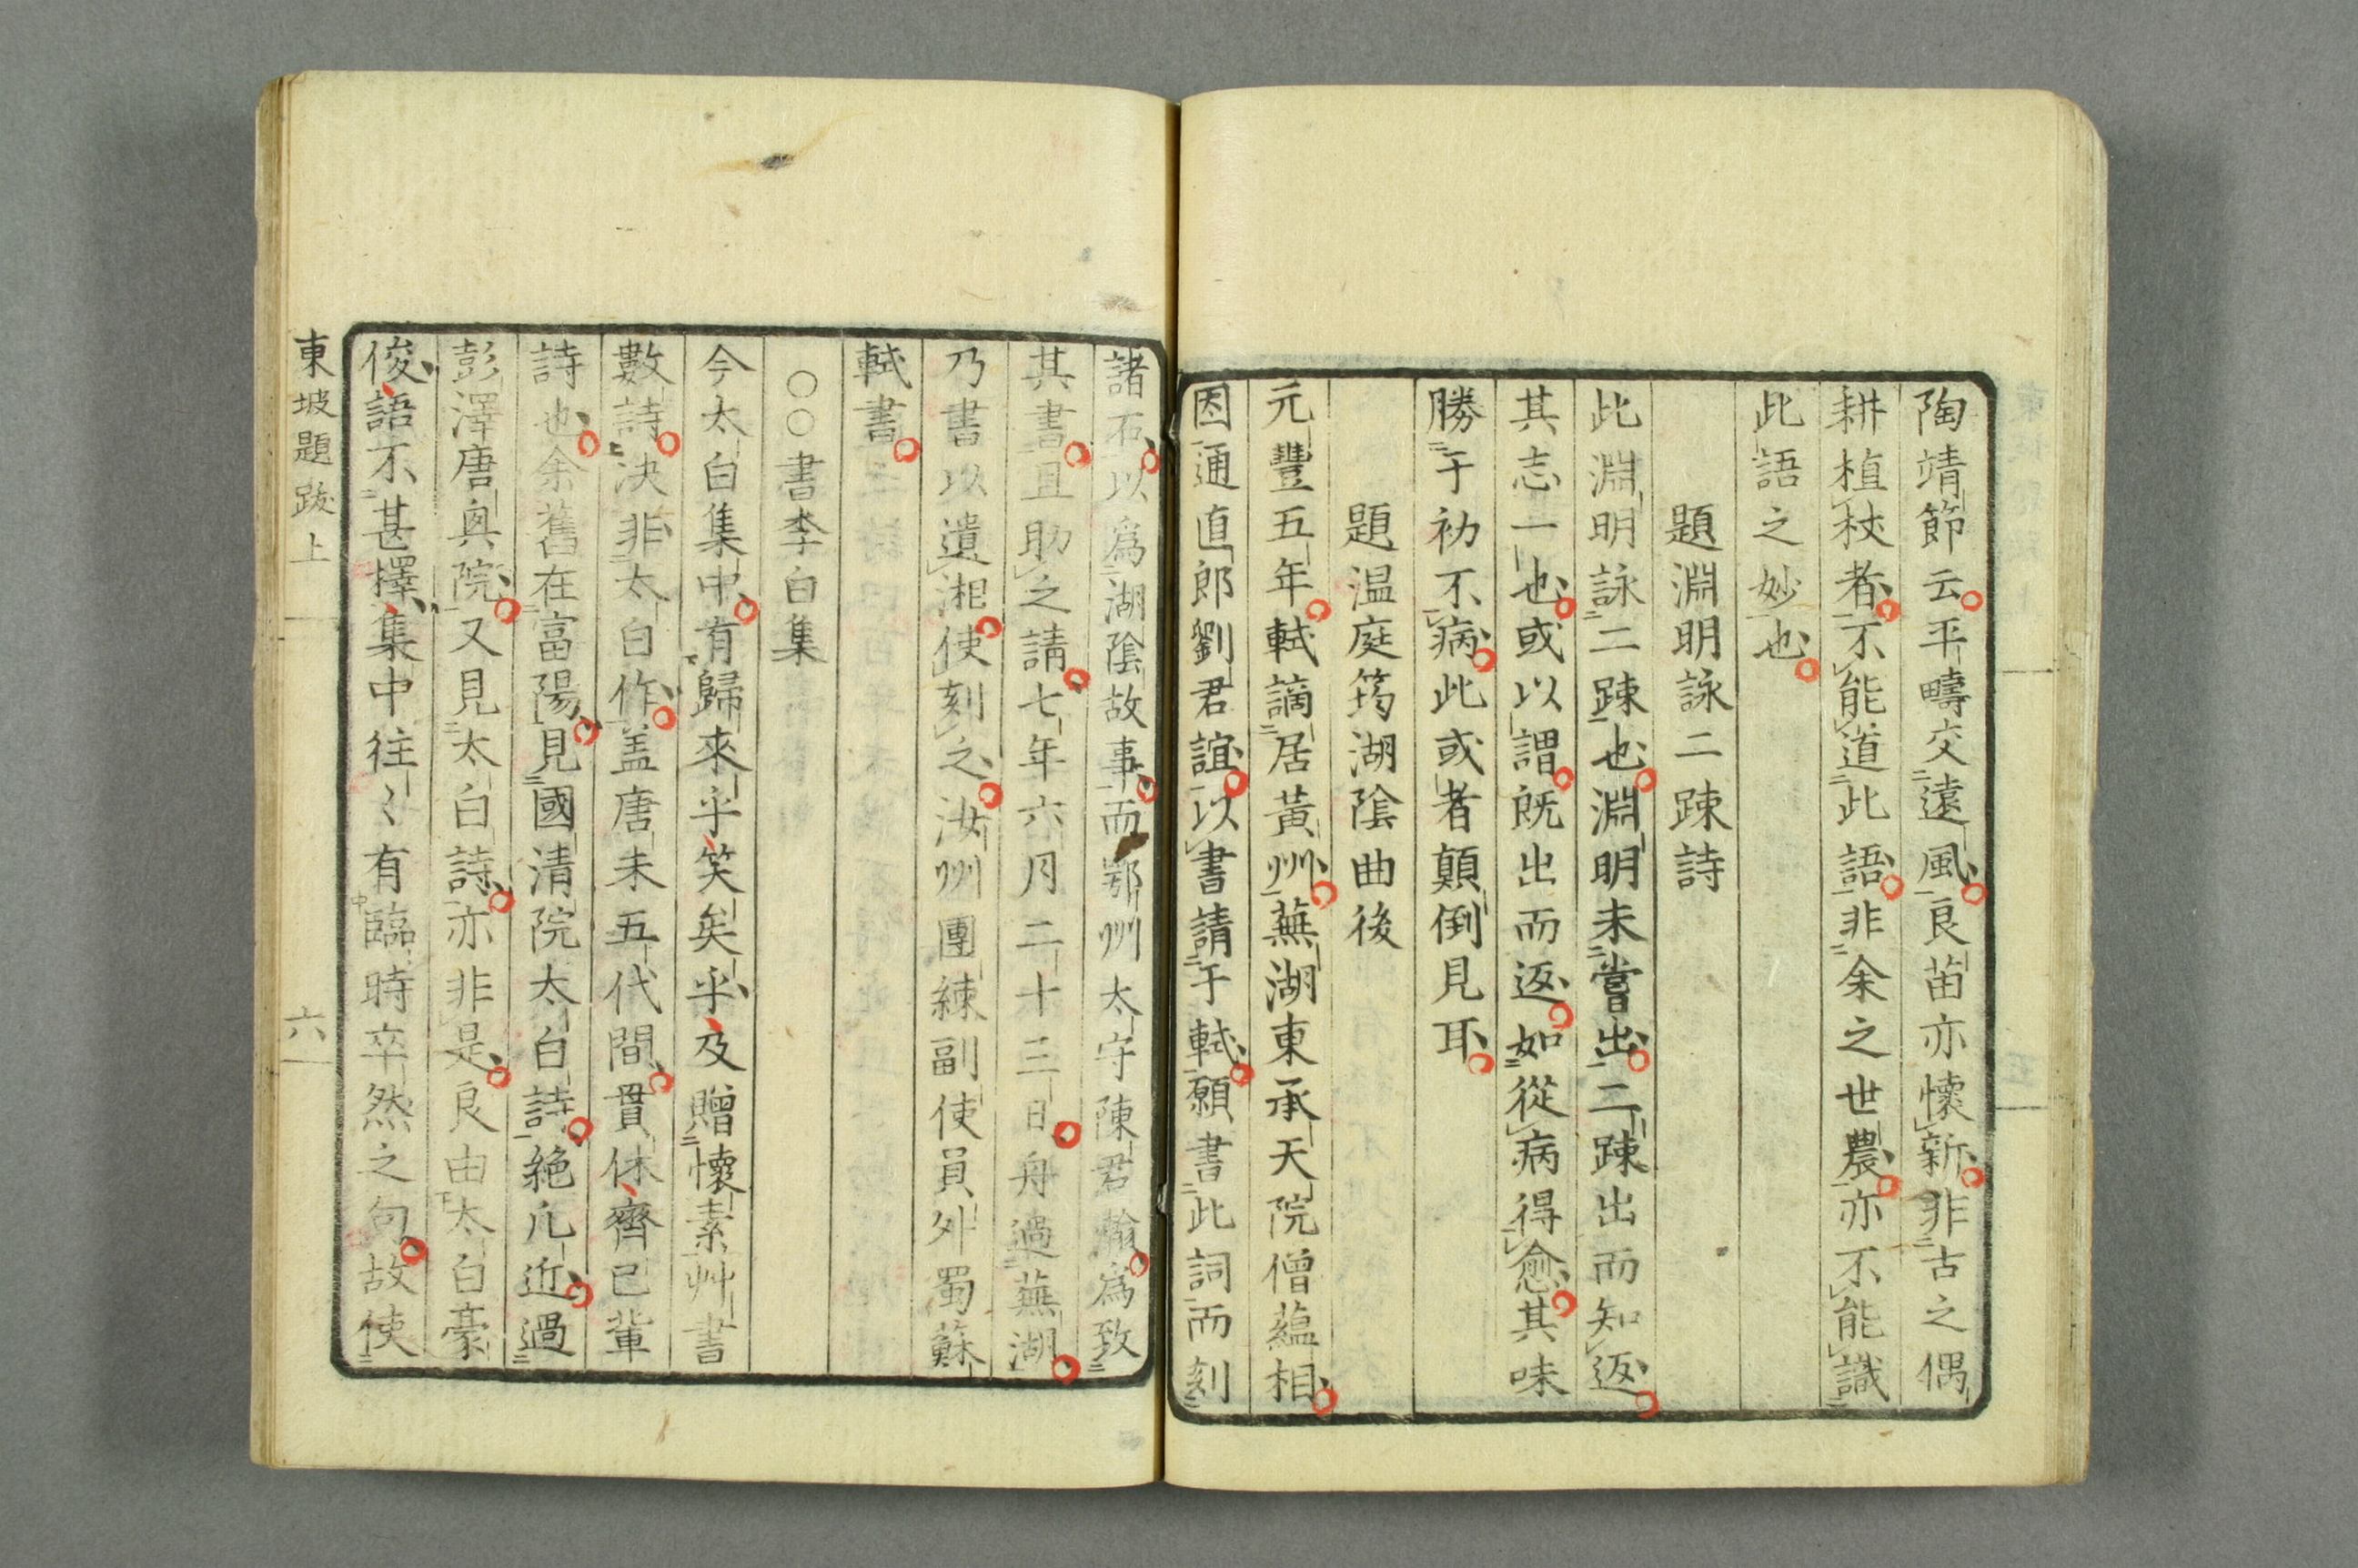 陶靖節云平疇交遠風良苗亦懷新非古之偶
耕植杖者不能道此語非余之世農亦不能識
此語之妙也
題淵明詠二踈詩
此淵明詠二踈也淵明未嘗出二踈出而知返
其志一也或以謂旣出而返如從病得愈其味
勝于初不病此或者顛倒見耳
題温庭筠湖陰曲後
元豐五年軾謫居黃州蕪湖東承天院僧蘊相
因通直郎劉君誼以書請于軾願書此詞而刻
諸石以爲湖陰故事而鄂州太守陳君瀚爲致
其書且助之請七年六月二十三日舟過蕪湖
乃書以遺湘使刻之汝州團練副使員外蜀蘇
軾書
〇〇書李白集
今太白集中有歸來乎笑矣乎及贈懷素艸書
數詩決非太白作盖唐末五代間貫休齊己輩
詩也余舊在富陽見國清院太白詩絶凢近過
彭澤唐興院又見太白詩亦非是良由太白豪
俊語不甚擇集中往〻有臨時卒然之句故使
東坡題跋上
六